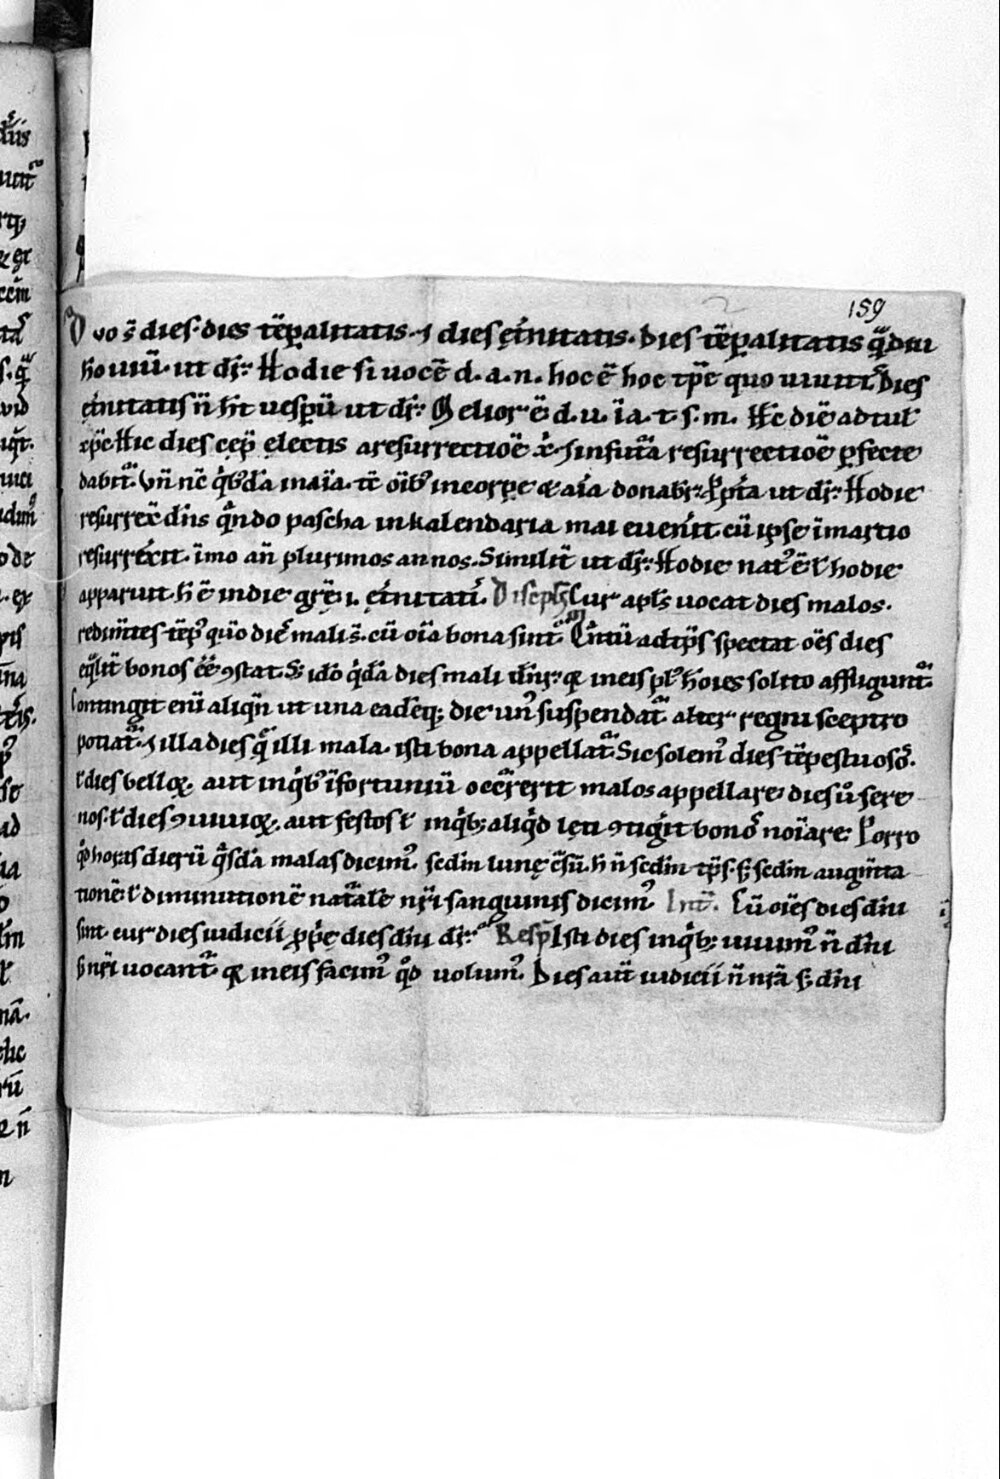 159
Duo s̄ dies· dies tēꝑalitatis· ⁊ dies et̾nitatis· Dies tēꝑalitatis q̄ diu
hō uiuit̄· ut dr̄· Hodie si uocē d. a. n. hoc ē hoc tp̄e quo uiuit̄· Dies
et̾nitatis n̄ h̄t uesꝑū ut dr̄· Melior ē d. u. ī a. t. s. m. Hc̄ diē adtul̾
xp̄c Hic dies cep̄ electis a resurrectiōe x̄· ⁊ in futūa resurrectiōe ꝑfecte
dabit̄· Vn̄ nc̄ q̾b᷒dā in aīa· tc̄ oīb᷒ in corꝑe & aīa donabr̄·
resurrex̄ dn̄s q̄ndo pascha in kalendaria mai euen̾it cū ipse ī martio
resurrexit· īmo an̄ plurimos annos· Similit̾ ut dr̄· Hodie nat᷒ ē ł hodie
apparuit· h ē in die grē· i· et̾nitatī· Discip̄ł Cur apl̄s uocat dies malos·
redim̄tes tēp᷒ qm̄o diē mali s̄· cū oīa bona sint̄ ad ip̄s spectat oēs dies
eq̄lit̾ bonos eē ꝯstat· S; idō q̾dā dies mali dn̄r· q̄ in eis ꝑł hoīes solito affligunt̄·
Contingit enī aliq̄n ut una eadēq; die un᷒ suspendat̄ alter regni sceptro
potiat̄· ⁊ illa dies q̄ illi mala· isti bona appellat̄· Sic solem᷒ dies tēpestuosō·
ł dies belloꝝ· aut in q̾b᷒ īfortuniū occ̄rerit malos appellare dies ů sere
nos· ł dies ꝯuiuioꝝ· aut festos ł in q̾b; aliq̾d leti ꝯtig̾it bonō noīare· Porro
qd̾ horas dierū q̄sdā malas dicim᷒ sedm lunę ēsū· h n̄ sedm tp̄s· s; sedm augm̄ta
tionē ł diminutionē nat̄alē nr̄i sanguinis dicim᷒· Int̄· Cū oēs dies dn̄i
sint cur dies iudicii ꝓp̾e dies dn̄i dr̄· Resp̄ Isti dies in q̾b; uiuim᷒ n̄ dn̄i
s; nr̄i uocant̄· q̄ in eis facim᷒ qd̾ uolum᷒· Dies aūt iudicii n̄ nr̄a s; dn̄i